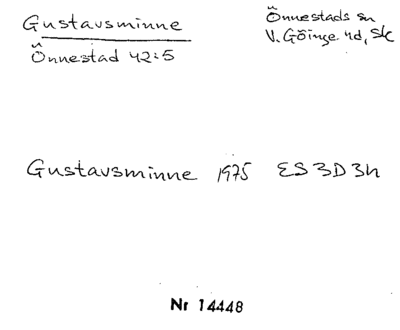 Gustavsminne
Önnestad 42:5
Önnestads sn
V. Göinge hd, Sk
Gustavsminne 1975 ES 3D 3h
Nr 14448